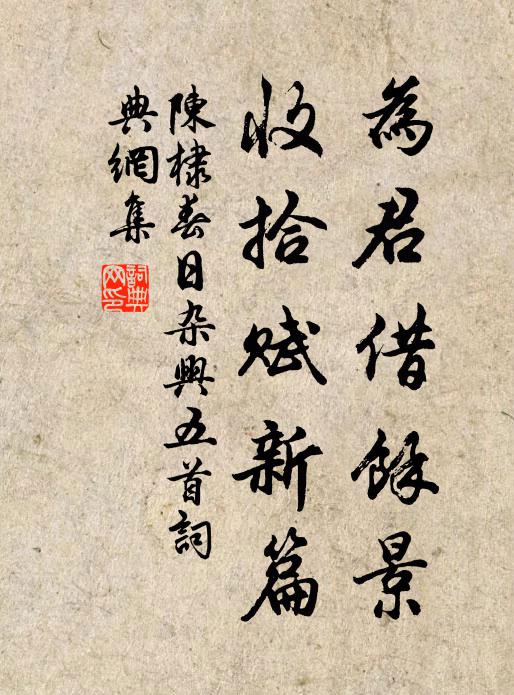 為君借餘景
收拾賦新篇
陳棣春日杂興五首詞
典網集
詞典網印